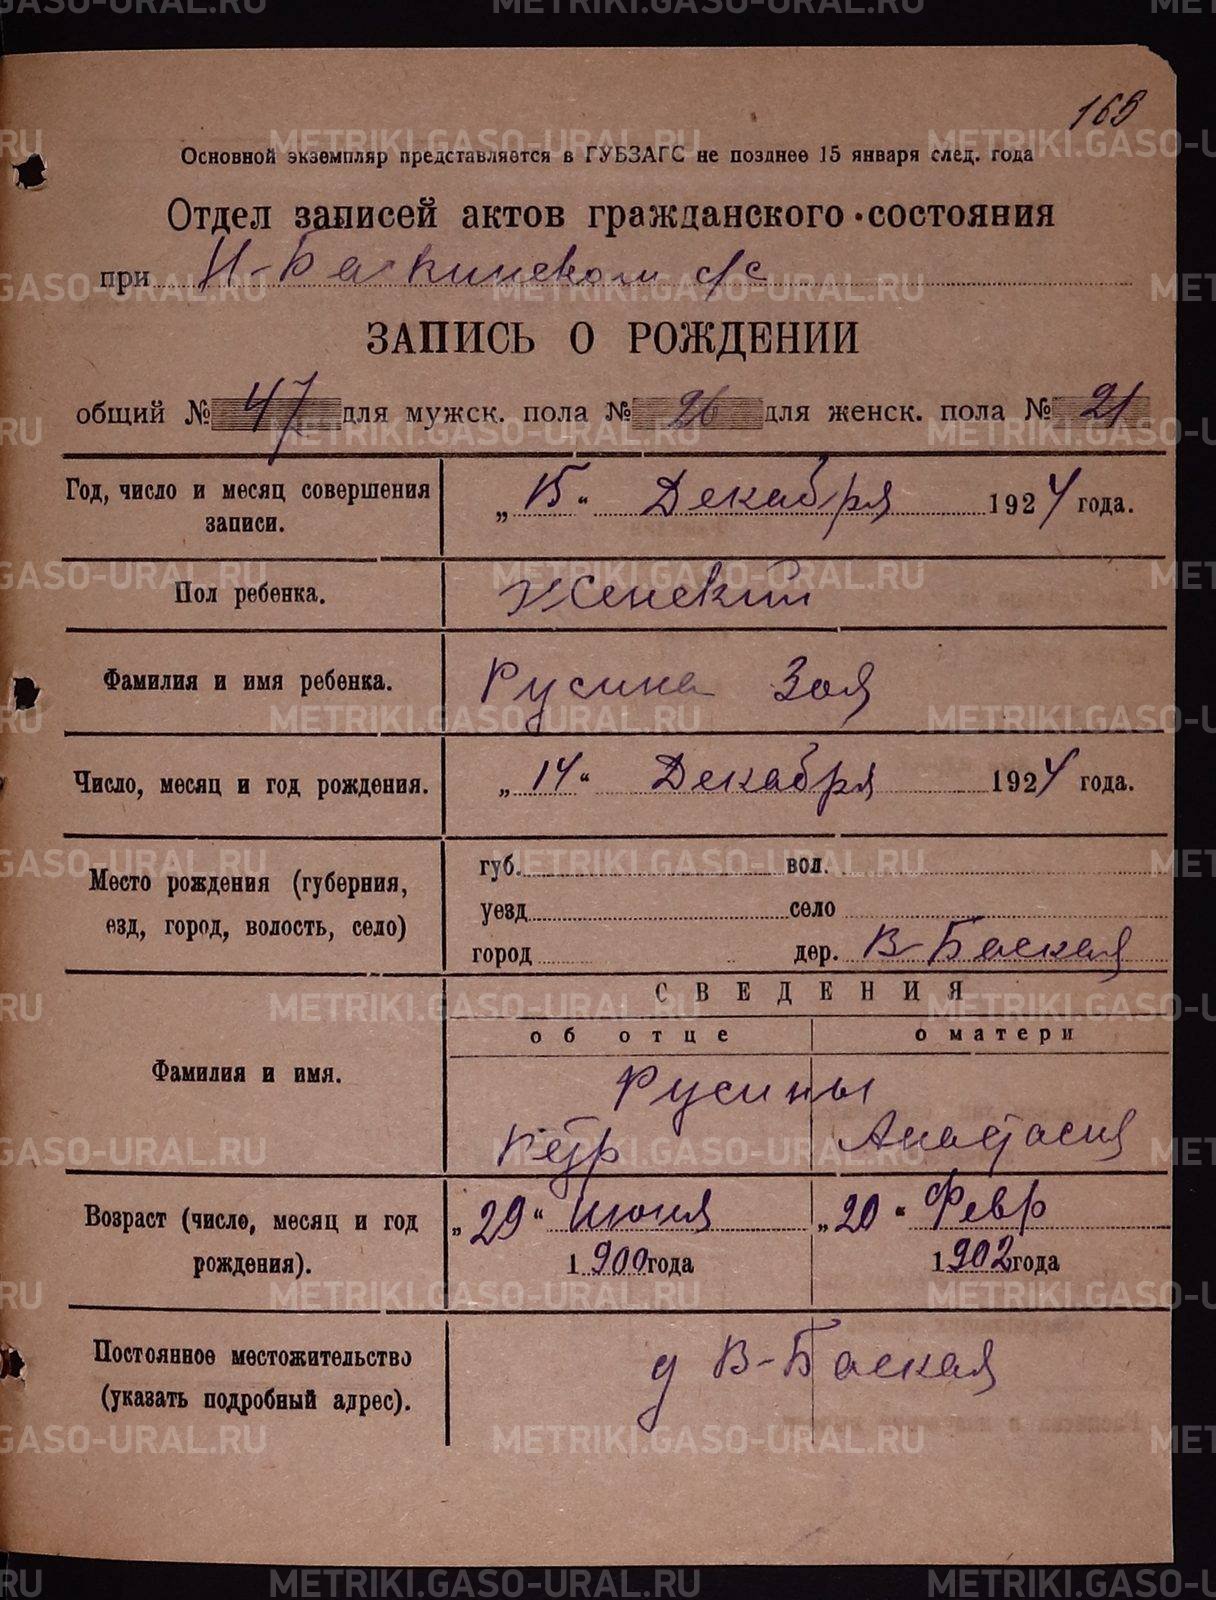 169
Основной экземпляр представляется в ГУБЗАГС не позднее 15 января след. года
Отдел записей актов гражданского состояния
при Н-Баскинском с/с
ЗАПИСЬ О РОЖДЕНИИ
общий № 47 для мужск. пола № 26 для женск. пола № 21
Год, число и месяц совершения записи. „15“ Декабря 1924 года.
Пол ребенка. Женский
Фамилия и имя ребенка. Русина Зоя
Число, месяц и год рождения. „14“ Декабря 1924 года.
Место рождения (губерния, езд, город, волость, село)
губ. вол.
уезд село
город дер. В-Баская
СВЕДЕНИЯ
об отце о матери
Фамилия и имя. Русины
Петр Анастасия
Возраст (число, месяц и год рождения).
„29“ июня „20“ Февр
1900 года 1902 года
Постоянное местожительство (указать подробный адрес).
д В-Баская
METRIKI.GASO-URAL.RU